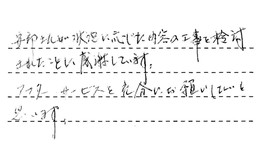 が状況に応じた内容の工事を検討
されたことに感謝しています。
アフターサービスを宜しくお願いしたいと
思います。